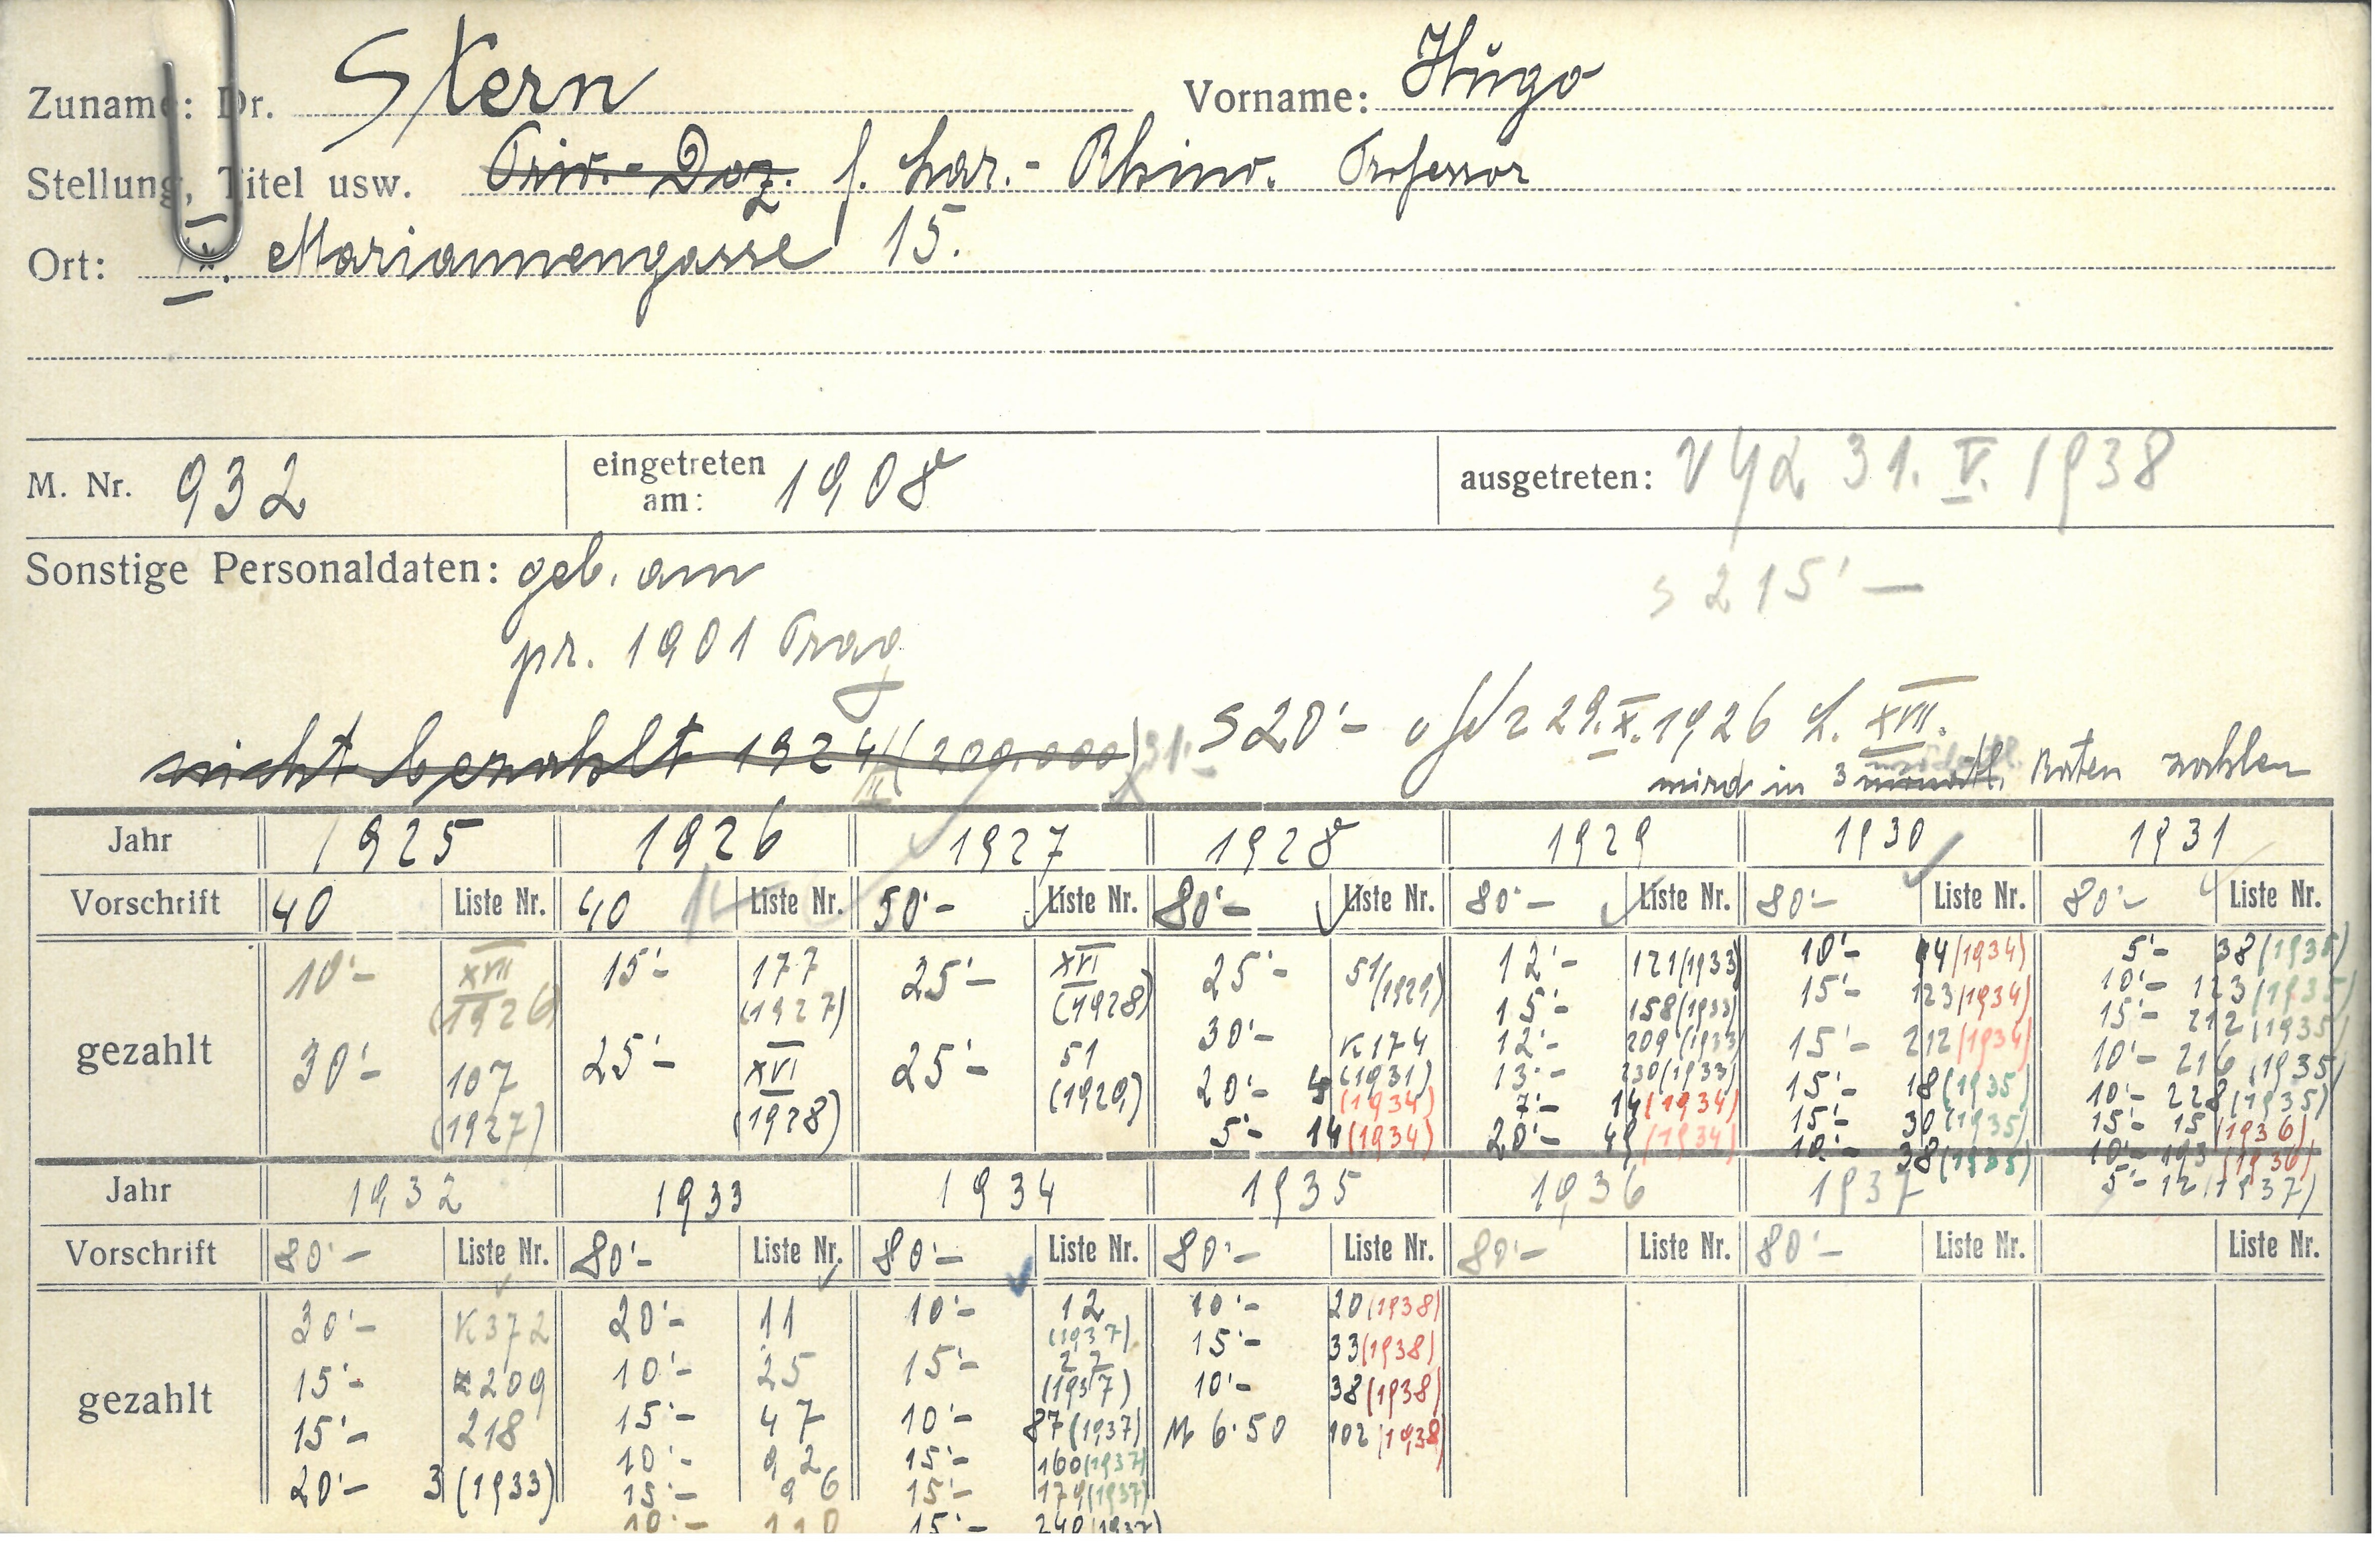 Zuname: Dr. Stern Vorname: Hugo
Stellung, Titel usw. Priv.-Doz. f. Lar.-Rhino. Professor
Ort: Mariannengasse 15.
M. Nr. 932 eingetreten am: 1908 ausgetreten: 31. V. 1938
Sonstige Personaldaten: geb. am
S 215'—
pr. 1901 Prag
nicht bezahlt 1924 (200.000) S 20'- 29. X. 1926 L. XVII.
wird in 3 monatl. Raten zahlen
Jahr 1925 1926 1927 1928 1929 1930 1931
Vorschrift 40 Liste Nr. 40 Liste Nr. 50'- Liste Nr. 80'- Liste Nr. 80'- Liste Nr. 80'- Liste Nr. 80'- Liste Nr.
gezahlt
10'- XVII (1926)
30'- 107 (1927)
15'- 177 (1927)
25'- XVI (1928)
25'- XVI (1928)
25'- 51 (1929)
25'- 51/(1929)
30'- K174 (1931)
20'- 4 (1934)
5'- 14 (1934)
12'- 121 (1933)
15'- 158 (1933)
12'- 209 (1933)
13'- 230 (1933)
7'- 14 (1934)
20'- 49 (1934)
10'- 44 (1934)
15'- 123 (1934)
15'- 212 (1934)
15'- 18 (1935)
15'- 30 (1935)
10'- 38 (1935)
5'- 38 (1935)
10'- 123 (1935)
15'- 212 (1935)
10'- 216 (1935)
10'- 228 (1935)
15'- 15 (1936)
10'- 193 (1936)
5'- 12 (1937)
Jahr 1932 1933 1934 1935 1936 1937
Vorschrift 80'- Liste Nr. 80'- Liste Nr. 80'- Liste Nr. 80'- Liste Nr. 80'- Liste Nr. 80'- Liste Nr. Liste Nr.
gezahlt
30'- K372
15'- 209
15'- 218
20'- 3 (1933)
20'- 11
10'- 25
15'- 47
10'- 92
15'- 96
10'- 110
10'- 12 (1937)
15'- 22 (1937)
10'- 87 (1937)
15'- 160 (1937)
15'- 179 (1937)
15'- 240 (1937)
10'- 20 (1938)
15'- 33 (1938)
10'- 38 (1938)
M 6.50 102 (1938)